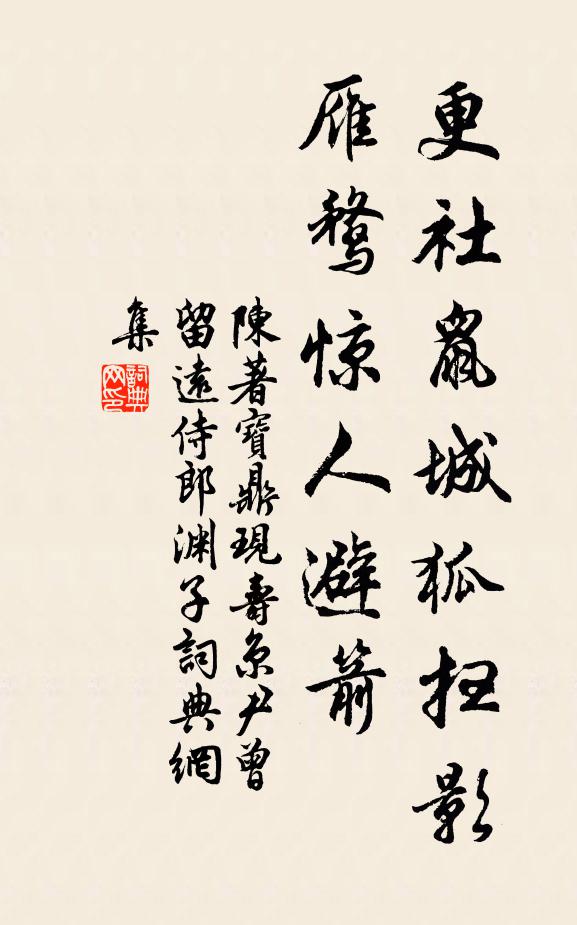 更社鼠城狐扫影
雁鹜惊人避箭
陳著寶鼎現壽京尹曾
留遠侍郎渊子詞典網
集
詞典网印